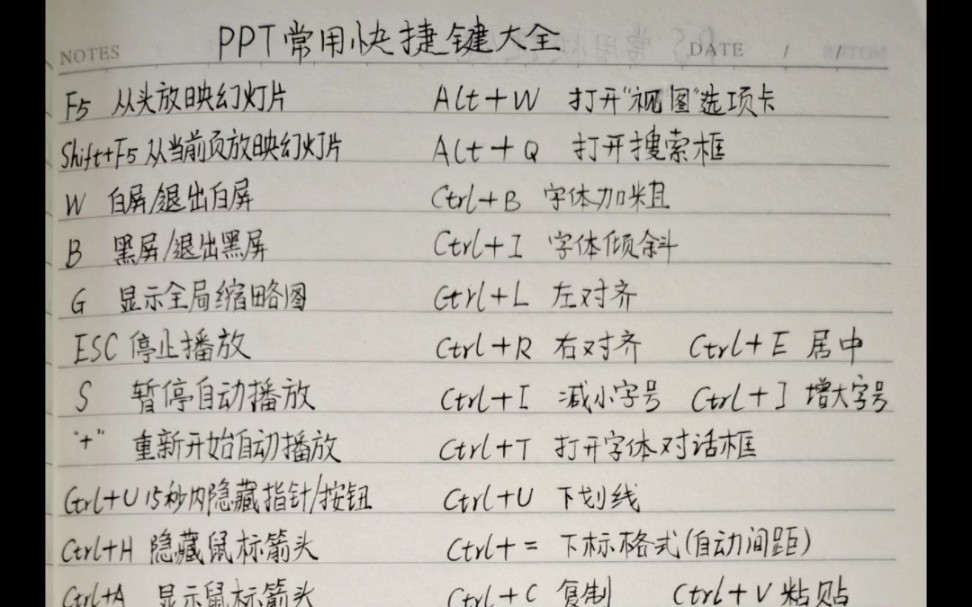 PPT常用快捷键大全
NOTES
DATE / /
F5 从头放映幻灯片 Alt+W 打开"视图"选项卡
Shift+F5 从当前页放映幻灯片 Alt+Q 打开搜索框
W 白屏/退出白屏 Ctrl+B 字体加粗
B 黑屏/退出黑屏 Ctrl+I 字体倾斜
G 显示全局缩略图 Ctrl+L 左对齐
ESC 停止播放 Ctrl+R 右对齐 Ctrl+E 居中
S 暂停自动播放 Ctrl+[ 减小字号 Ctrl+] 增大字号
"+" 重新开始自动播放 Ctrl+T 打开字体对话框
Ctrl+U 15秒内隐藏指针/按钮 Ctrl+U 下划线
Ctrl+H 隐藏鼠标箭头 Ctrl+= 下标格式(自动间距)
Ctrl+A 显示鼠标箭头 Ctrl+C 复制 Ctrl+V 粘贴